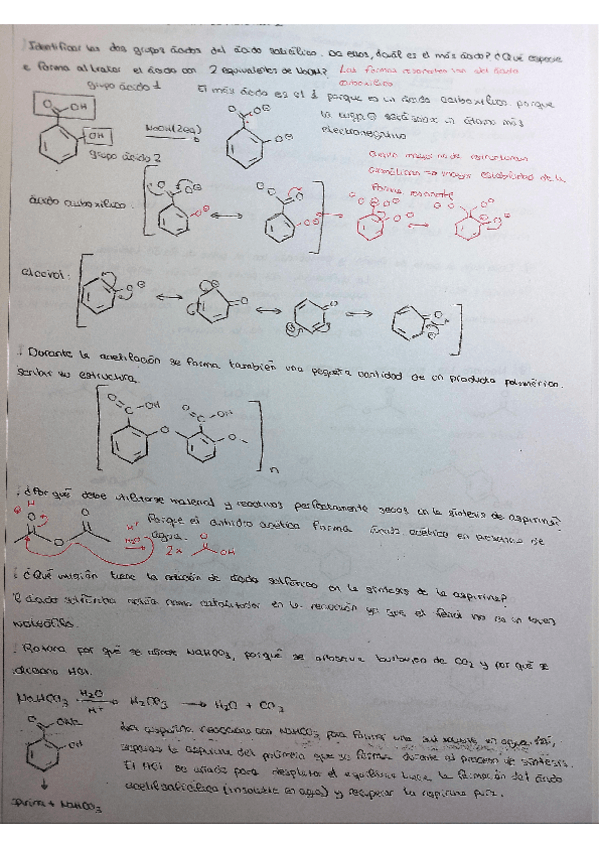 Identificar los dos grupos ácidos del ácido salicílico. De ellos, ¿cuál es el más ácido? ¿Qué especie
e forma al tratar el ácido con 2 equivalentes de NaOH? Las formas resonantes del ácido
carboxílico
Grupo ácido 1
El más ácido es el 1 porque es un ácido carboxílico porque
la carga ⊖ está sobre un átomo más
electronegativo
O
OH
OH
NaOH (2eq)
O
O⊖
O⊖
Grupo ácido 2
mayor estabilidad de la
forma resonante
ácido carboxílico:
alcohol:
Durante la acetilación se forma también una pequeña cantidad de un producto polimérico.
su estructura.
O
OH
O
OH
O
O
n
¿Por qué debe utilizarse material y reactivos perfectamente secos en la síntesis de aspirina?
Porque el anhídrido acético forma ácido acético en presencia de
agua.
O
O
O
H⁺
H₂O
2x
O
OH
¿Qué misión tiene la adición de ácido sulfúrico en la síntesis de la aspirina?
ácido sulfúrico actúa como catalizador en la reacción ya que el fenol no es un buen
nucleófilo.
por qué se utiliza NaHCO₃, por qué se observa burbujeo de CO₂ y por qué se
HCl.
NaHCO₃ H₂O H⁺ → H₂CO₃ → H₂O + CO₂
O
ONa
La aspirina reacciona con NaHCO₃ para formar una sal soluble en agua. Así,
separas la aspirina del polímero que se forma durante el proceso de síntesis.
El HCl es usado para desplazar el equilibrio hacia la formación del ácido
acetilsalicílico (insoluble en agua) y recuperar la aspirina pura.
spirina + NaHCO₃